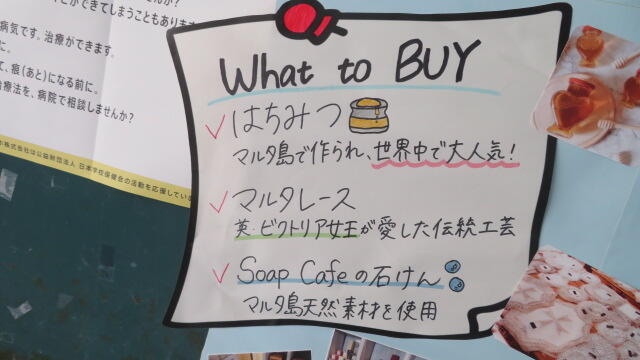 てしまうことも
病気です。治療ができます。
に。
て、痕(あと)になる前に。
治療法を、病院で相談しませんか?
株式会社は公益財団法人 日本学校保健会の活動を応援してい
What to BUY
はちみつ
マルタ島で作られ、世界中で大人気!
マルタレース
英・ビクトリア女王が愛した伝統工芸
Soap Cafeの石けん
マルタ島天然素材を使用